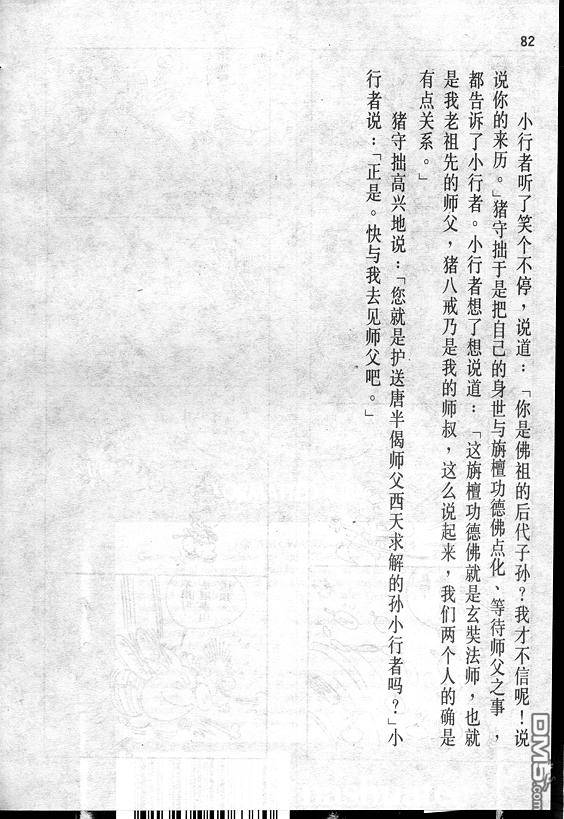 82
小行者听了笑个不停，说道：「你是佛祖的后代子孙？我才不信呢！说
说你的来历。」猪守拙于是把自己的身世与旃檀功德佛点化、等待师父之事，
都告诉了小行者。小行者想了想说道：「这旃檀功德佛就是玄奘法师，也就
是我老祖先的师父，猪八戒乃是我的师叔，这么说起来，我们两个人的确是
有点关系。」
猪守拙高兴地说：「您就是护送唐半偈师父西天求解的孙小行者吗？」小
行者说：「正是。快与我去见师父吧。」
DM5.com